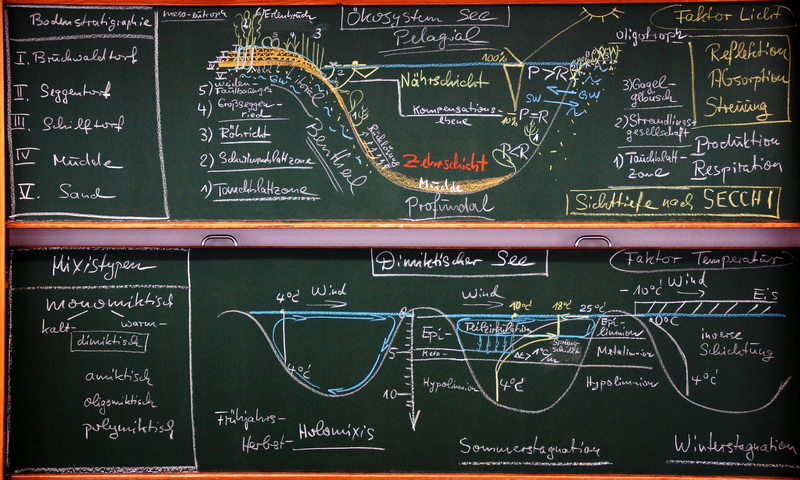 Bodenstratigraphie
I. Bruchwaldtorf
II. Seggentorf
III. Schilftorf
IV Mudde
V. Sand
meso-eutroph
Erlenbruch
Ökosystem See
Pelagial
Faktor Licht
Reflektion
Absorption
Streuung
Produktion
Respiration
Sichttiefe nach SECCHI
oligotroph
3) Gagelgebüsch
2) Strandlingsgesellschaft
1) Tauchblattzone
5) Weiden-Faulbaumges.
4) Großseggenried
3) Röhricht
2) Schwimmblattzone
1) Tauchblattzone
Litoral
Benthal
Nährschicht
Kompensationsebene
Zehrschicht
Mudde
Profundal
100%
P>R
P=R
P<R
SW
GW
GW
Mixistypen
monomiktisch
kalt- warm-
dimiktisch
amiktisch
oligomiktisch
polymiktisch
Dimiktischer See
Faktor Temperatur
4°C Wind
4°C
Frühjahrs-
Herbst- Holomixis
0
5
10
Wind 10°C 18°C 25°C
Epi-
Meta-
Hypolimnion
Teilzirkulation
Sprungschicht
Δt > 1°C/m
4°C
Epilimnion
Metalimnion
Hypolimnion
Sommerstagnation
-10°C Wind Eis
0°C
inverse
Schichtung
4°C
Winterstagnation